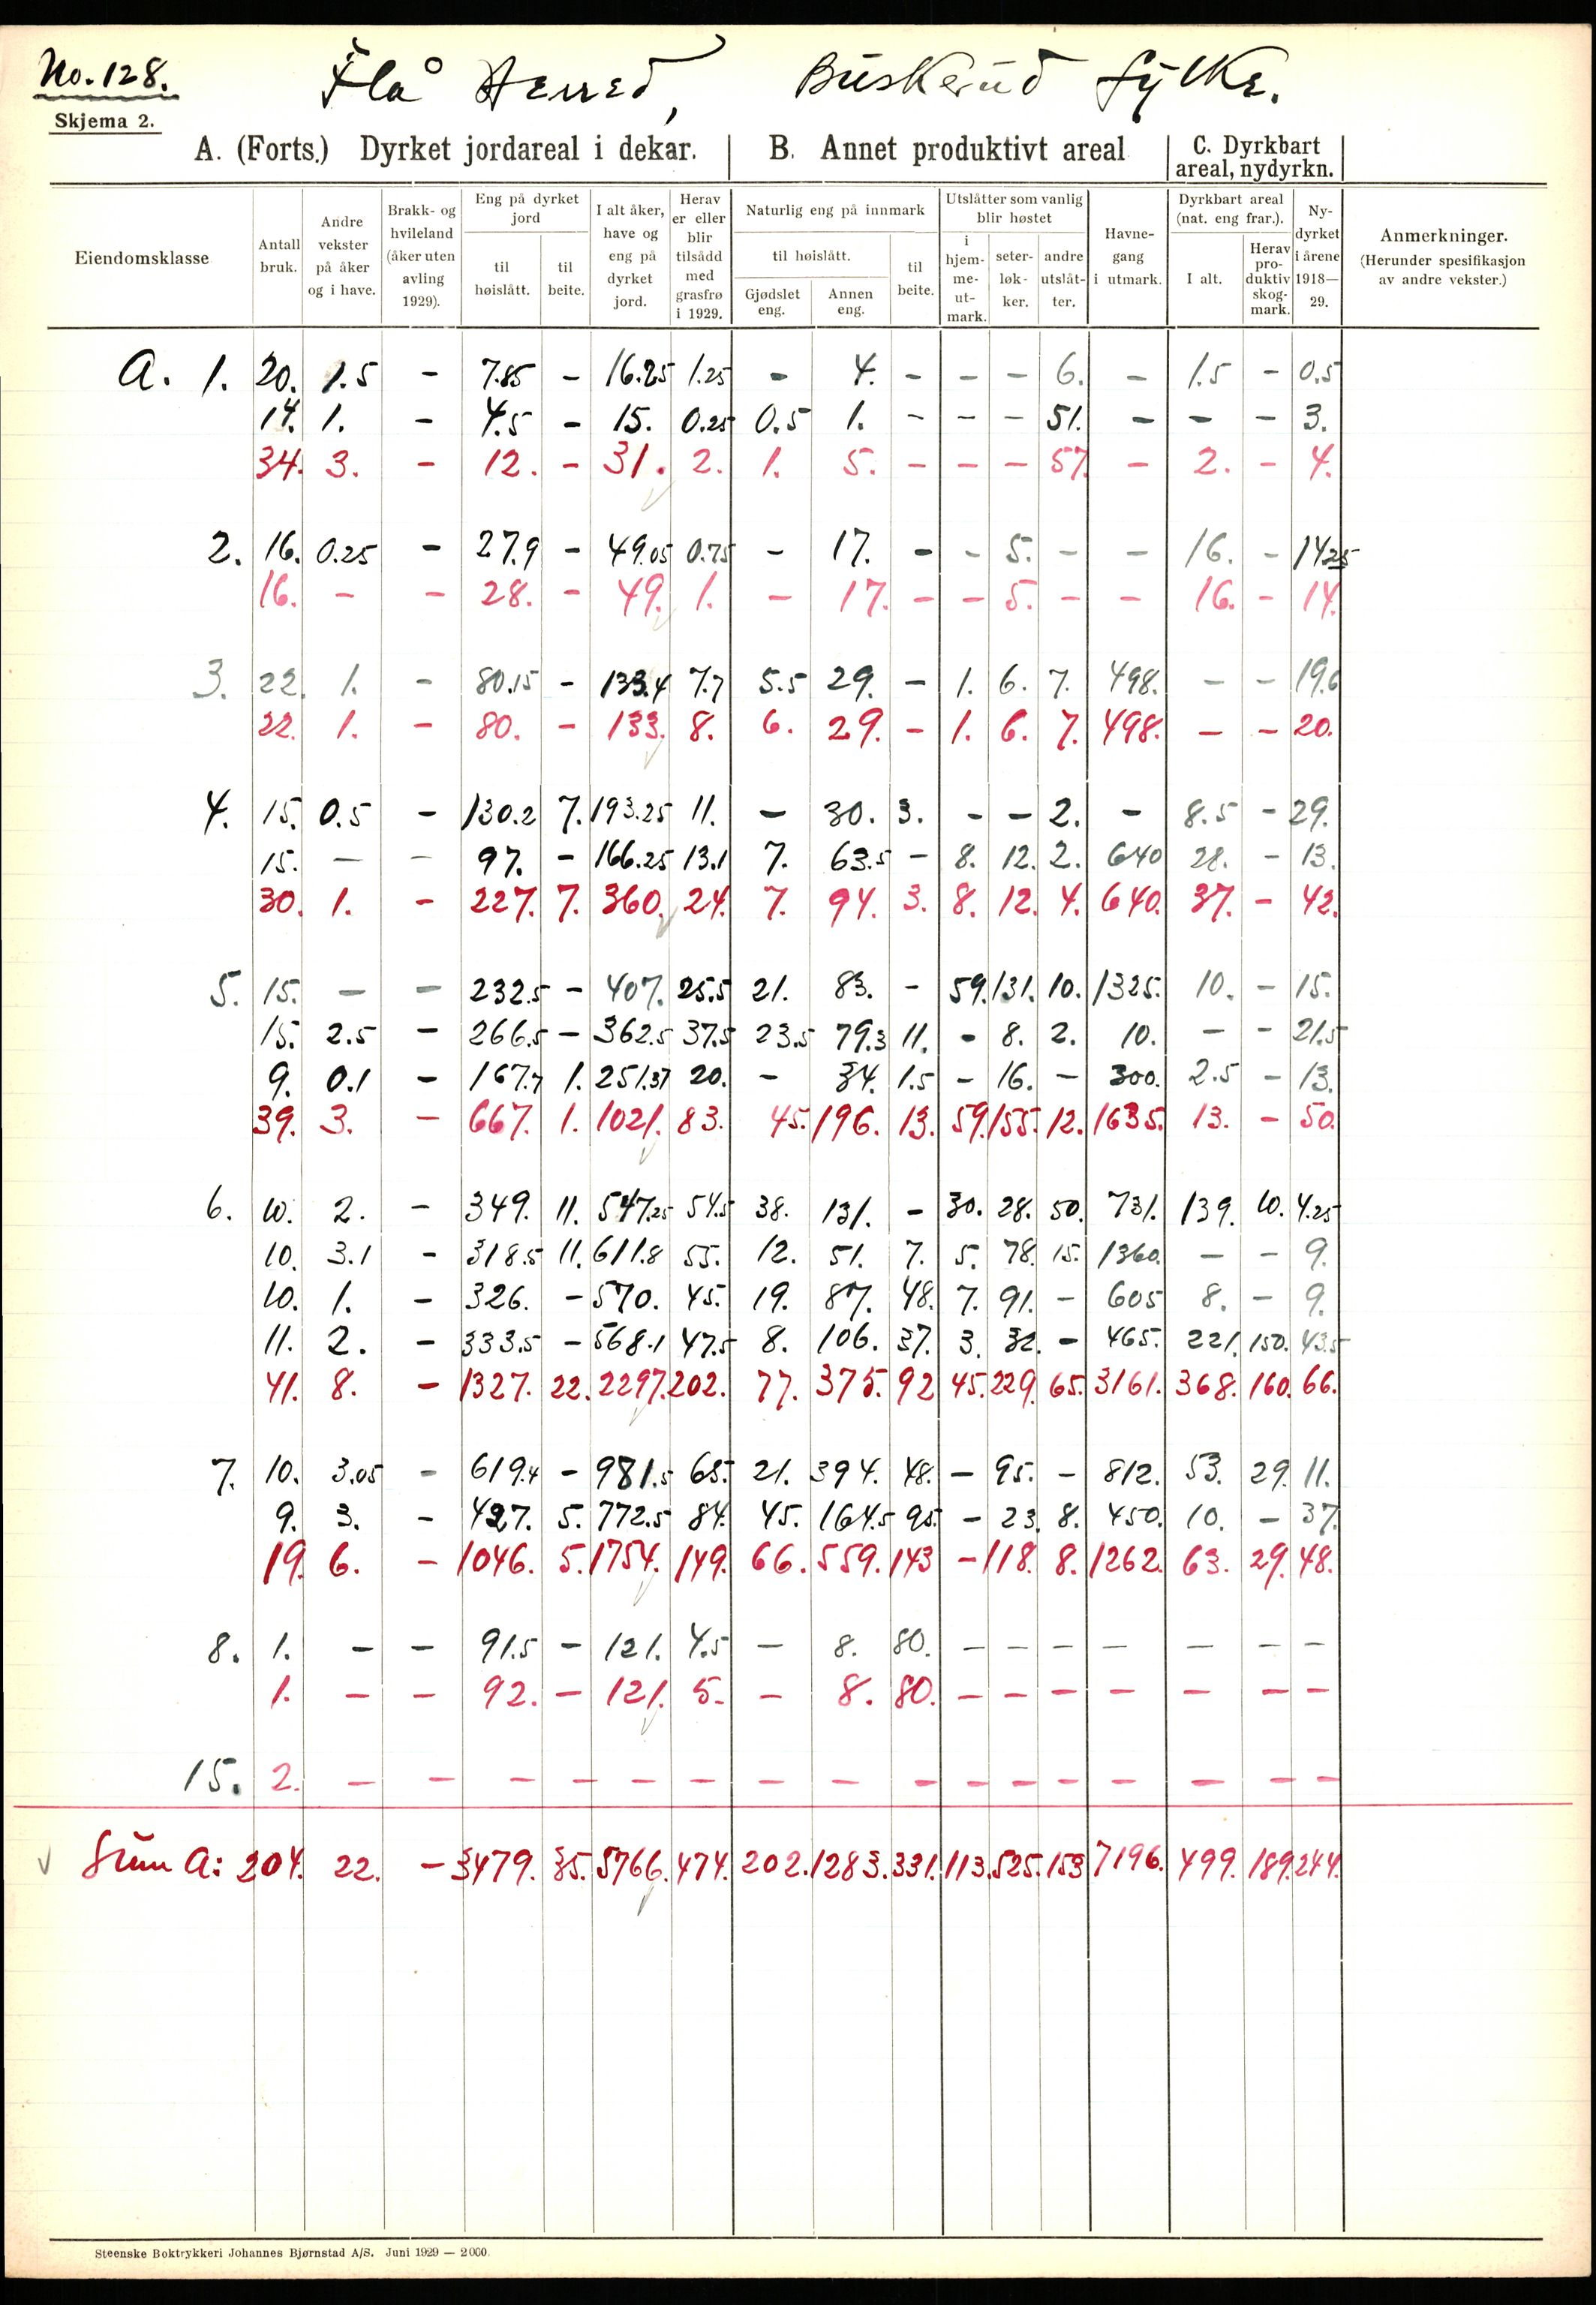 No. 128. Flå Herred, Buskerud fylke.
Skjema 2.
A. (Forts.) Dyrket jordareal i dekar. B. Annet produktivt areal C. Dyrkbart areal, nydyrkn.
Eiendomsklasse Antall bruk. Andre vekster på åker og i have. Brakk- og hvileland (åker uten avling 1929). Eng på dyrket jord til høislått. til beite. I alt åker, have og eng på dyrket jord. Herav er eller blir tilsådd med grasfrø i 1929. Naturlig eng på innmark til høislått. Gjødslet eng. Annen eng. til beite. Utslåtter som vanlig blir høstet i hjem-me-ut-mark. seter-løk-ker. andre utslåt-ter. Havne-gang i utmark. Dyrkbart areal (nat. eng frar.). I alt. Herav pro-duktiv skog-mark. Ny-dyrket i årene 1918—29. Anmerkninger. (Herunder spesifikasjon av andre vekster.)
A. 1. 20. 1.5 - 7.85 - 16.25 1.25 - 4. - - - 6. - 1.5 - 0.5
14. 1. - 4.5 - 15. 0.25 0.5 1. - - - 51. - - - 3.
34. 3. - 12. - 31. 2. 1. 5. - - - 57. - 2. - 4.
2. 16. 0.25 - 27.9 - 49.05 0.75 - 17. - - 5. - - 16. - 14.25
16. - - 28. - 49. 1. - 17. - - 5. - - 16. - 14.
3. 22. 1. - 80.15 - 133.4 7.7 5.5 29. - 1. 6. 7. 498. - - 19.6
22. 1. - 80. - 133. 8. 6. 29. - 1. 6. 7. 498. - - 20.
4. 15. 0.5 - 130.2 7. 193.25 11. - 30. 3. - - 2. - 8.5 - 29.
15. - - 97. - 166.25 13.1 7. 63.5 - 8. 12. 2. 640 28. - 13.
30. 1. - 227. 7. 360. 24. 7. 94. 3. 8. 12. 4. 640. 37. - 42.
5. 15. - - 232.5 - 407. 25.5 21. 83. - 59. 131. 10. 1325. 10. - 15.
15. 2.5 - 266.5 - 362.5 37.5 23.5 79.3 11. - 8. 2. 10. - - 21.5
9. 0.1 - 167.7 1. 251.37 20. - 34. 1.5 - 16. - 300. 2.5 - 13.
39. 3. - 667. 1. 1021. 83. 45. 196. 13. 59. 155. 12. 1635. 13. - 50.
6. 10. 2. - 349. 11. 547.25 54.5 38. 131. - 30. 28. 50. 731. 139. 10. 4.25
10. 3.1 - 318.5 11. 611.8 55. 12. 51. 7. 5. 78. 15. 1360. - - 9.
10. 1. - 326. - 570. 45. 19. 87. 48. 7. 91. - 605 8. - 9.
11. 2. - 333.5 - 568.1 47.5 8. 106. 37. 3. 32. - 465. 221. 150. 43.5
41. 8. - 1327. 22. 2297. 202. 77. 375. 92 45. 229. 65. 3161. 368. 160. 66.
7. 10. 3.05 - 619.4 - 981.5 65. 21. 394. 48. - 95. - 812. 53. 29. 11.
9. 3. - 427. 5. 772.5 84. 45. 164.5 95. - 23. 8. 450. 10. - 37.
19. 6. - 1046. 5. 1754. 149. 66. 559. 143 - 118. 8. 1262. 63. 29. 48.
8. 1. - - 91.5 - 121. 4.5 - 8. 80. - - - - - - -
1. - - 92. - 121. 5. - 8. 80. - - - - - - -
15. 2. - - - - - - - - - - - - - - - -
Sum A: 204. 22. - 3479. 35. 5766. 474. 202. 1283. 331. 113. 525. 153 7196. 499. 189. 244.
Steenske Boktrykkeri Johannes Bjørnstad A/S. Juni 1929 — 2000.